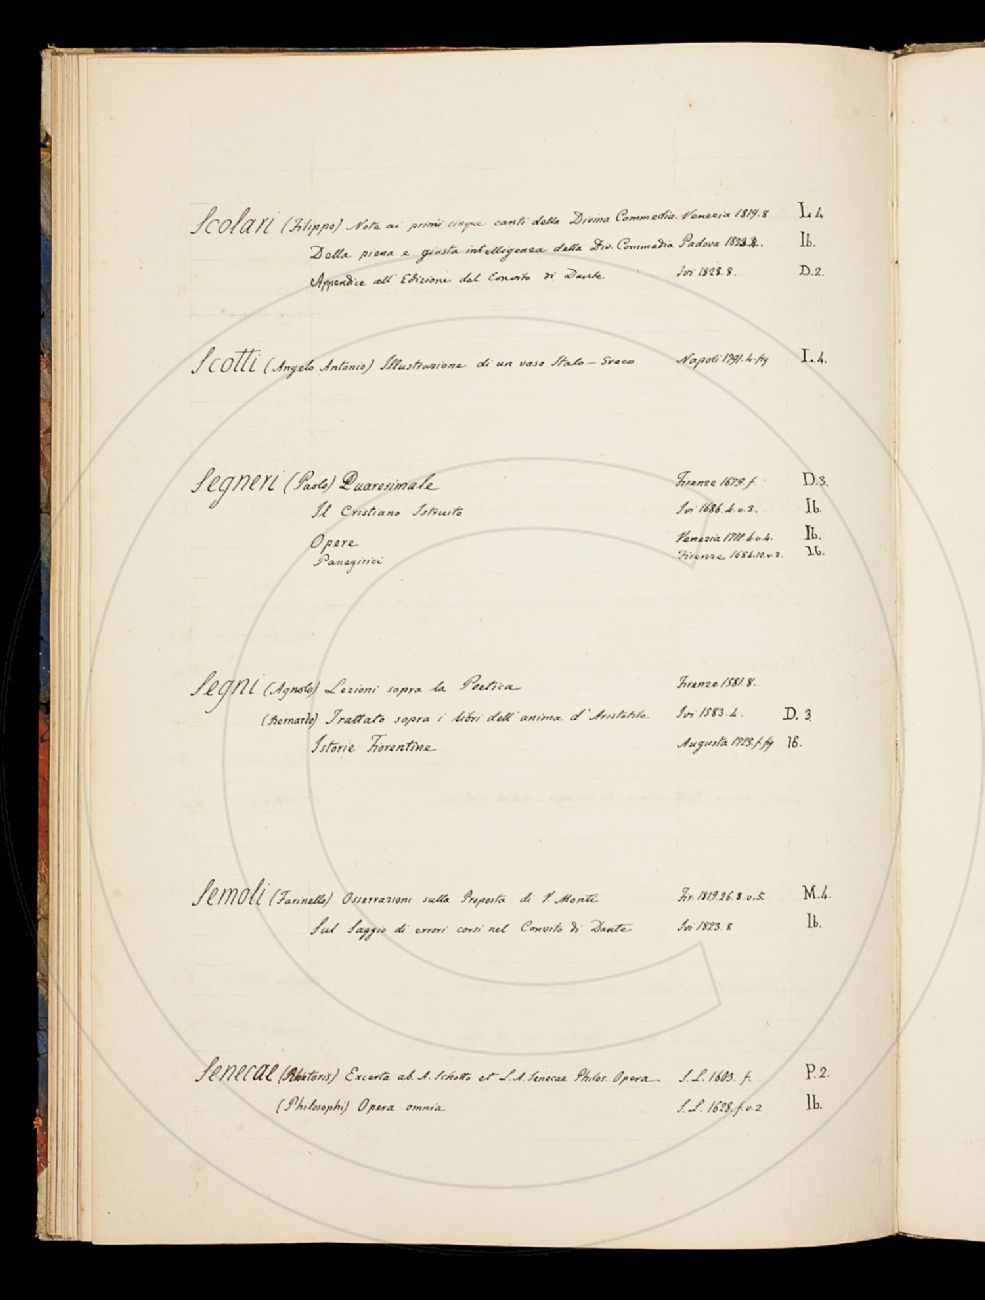 Scolari (Filippo) Note ai primi cinque canti della Divina Commedia. Venezia 1819. 8 L. 4
Della piena e giusta intelligenza della Div. Commedia Padova Ib.
Appendice all Edizione del Convito di Dante Ivi 1828. 8. D. 2.
Scotti (Angelo Antonio) Illustrazione di un vaso Italo-Greco Napoli 4. fig L. 4.
Segneri (Paolo) Quaresimale Firenze 1679. f. D. 3.
Il Cristiano Istruito Ivi 1686. 4. v. 3. Ib.
Opere Venezia 4. v. 4. Ib.
Panegirici Firenze 1684. 12. v. 2. Ib.
Segni (Agnolo) Lezioni sopra la Poetica Firenze 1581. 8.
(Bernardo) Trattato sopra i libri dell' anima d' Aristotile Ivi 1583. 4. D. 3
Istorie Fiorentine Augusta 1723. f. fig Ib.
Semoli (Farinello) Osservazioni sulla Proposta di V. Monti Fir. 1819. 26. 8. v. 5. M. 4.
Sul Saggio di errori corsi nel Convito di Dante Ivi 1823. 8 Ib.
Senecae (Rhetoris) Excerta ab. A. Schotto et L. A. Senecae Philos. Opera S. L. 1603. f. P. 2.
(Philosophi) Opera omnia S. L. 1628. f. v. 2 Ib.